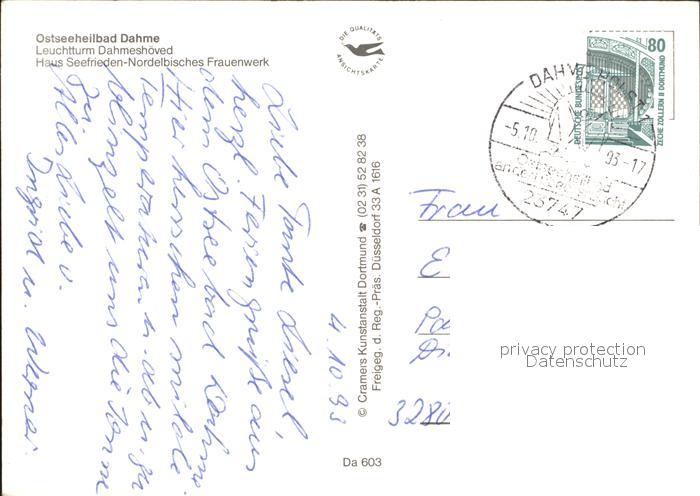 Ostseeheilbad Dahme
Leuchtturm Dahmeshöved
Haus Seefrieden-Nordelbisches Frauenwerk
DIE QUALITÄTS
ANSICHTSKARTE
80
DEUTSCHE BUNDESPOST
ZECHE ZOLLERN II DORTMUND
DAHME, HOLST 1
-5.10. 93-17
Ostseeheilbad
an der Lübecker Bucht
23747
4.10.93
Liebe Tante Liesel,
herzl. Feriengrüße aus
dem Ostseebad Dahme.
Hier herrschen milde
Temperaturen, ab u. zu
blinzelt uns die Sonne
zu.
Alles Liebe v.
Ingrid u. Werner
© Cramers Kunstanstalt Dortmund ☎ (02 31) 52 82 38
Freigeg. d. Reg.-Präs. Düsseldorf 33 A 1616
Da 603
Frau
E
Pa
Di
3280
privacy protection
Datenschutz